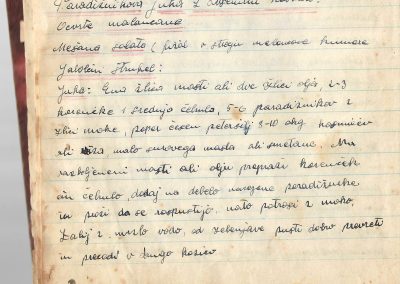 Paradižnikova juha z
Ocvrte malancane
Mešana solata (fižol v stroju melancana kumare
Jabolčni štrukel:
Juha: Ena žlica masti ali dve žlici olja, 2-3
korenčke 1 srednja čebula, 5-6 paradižnikov 2
žlici moke, poper česen peteršilj 8-10 dkg
ali riža, malo surovega masla ali smetane. Na
razbeljeni masti ali olju prepraži korenček
in čebulo, dodaj na debelo narezane paradižnike
in praži da se razpustijo, nato potrosi z moko,
Zalij z mrzlo vodo, od zelenjave pusti dobro prevreti
in precedi v drugo kozico